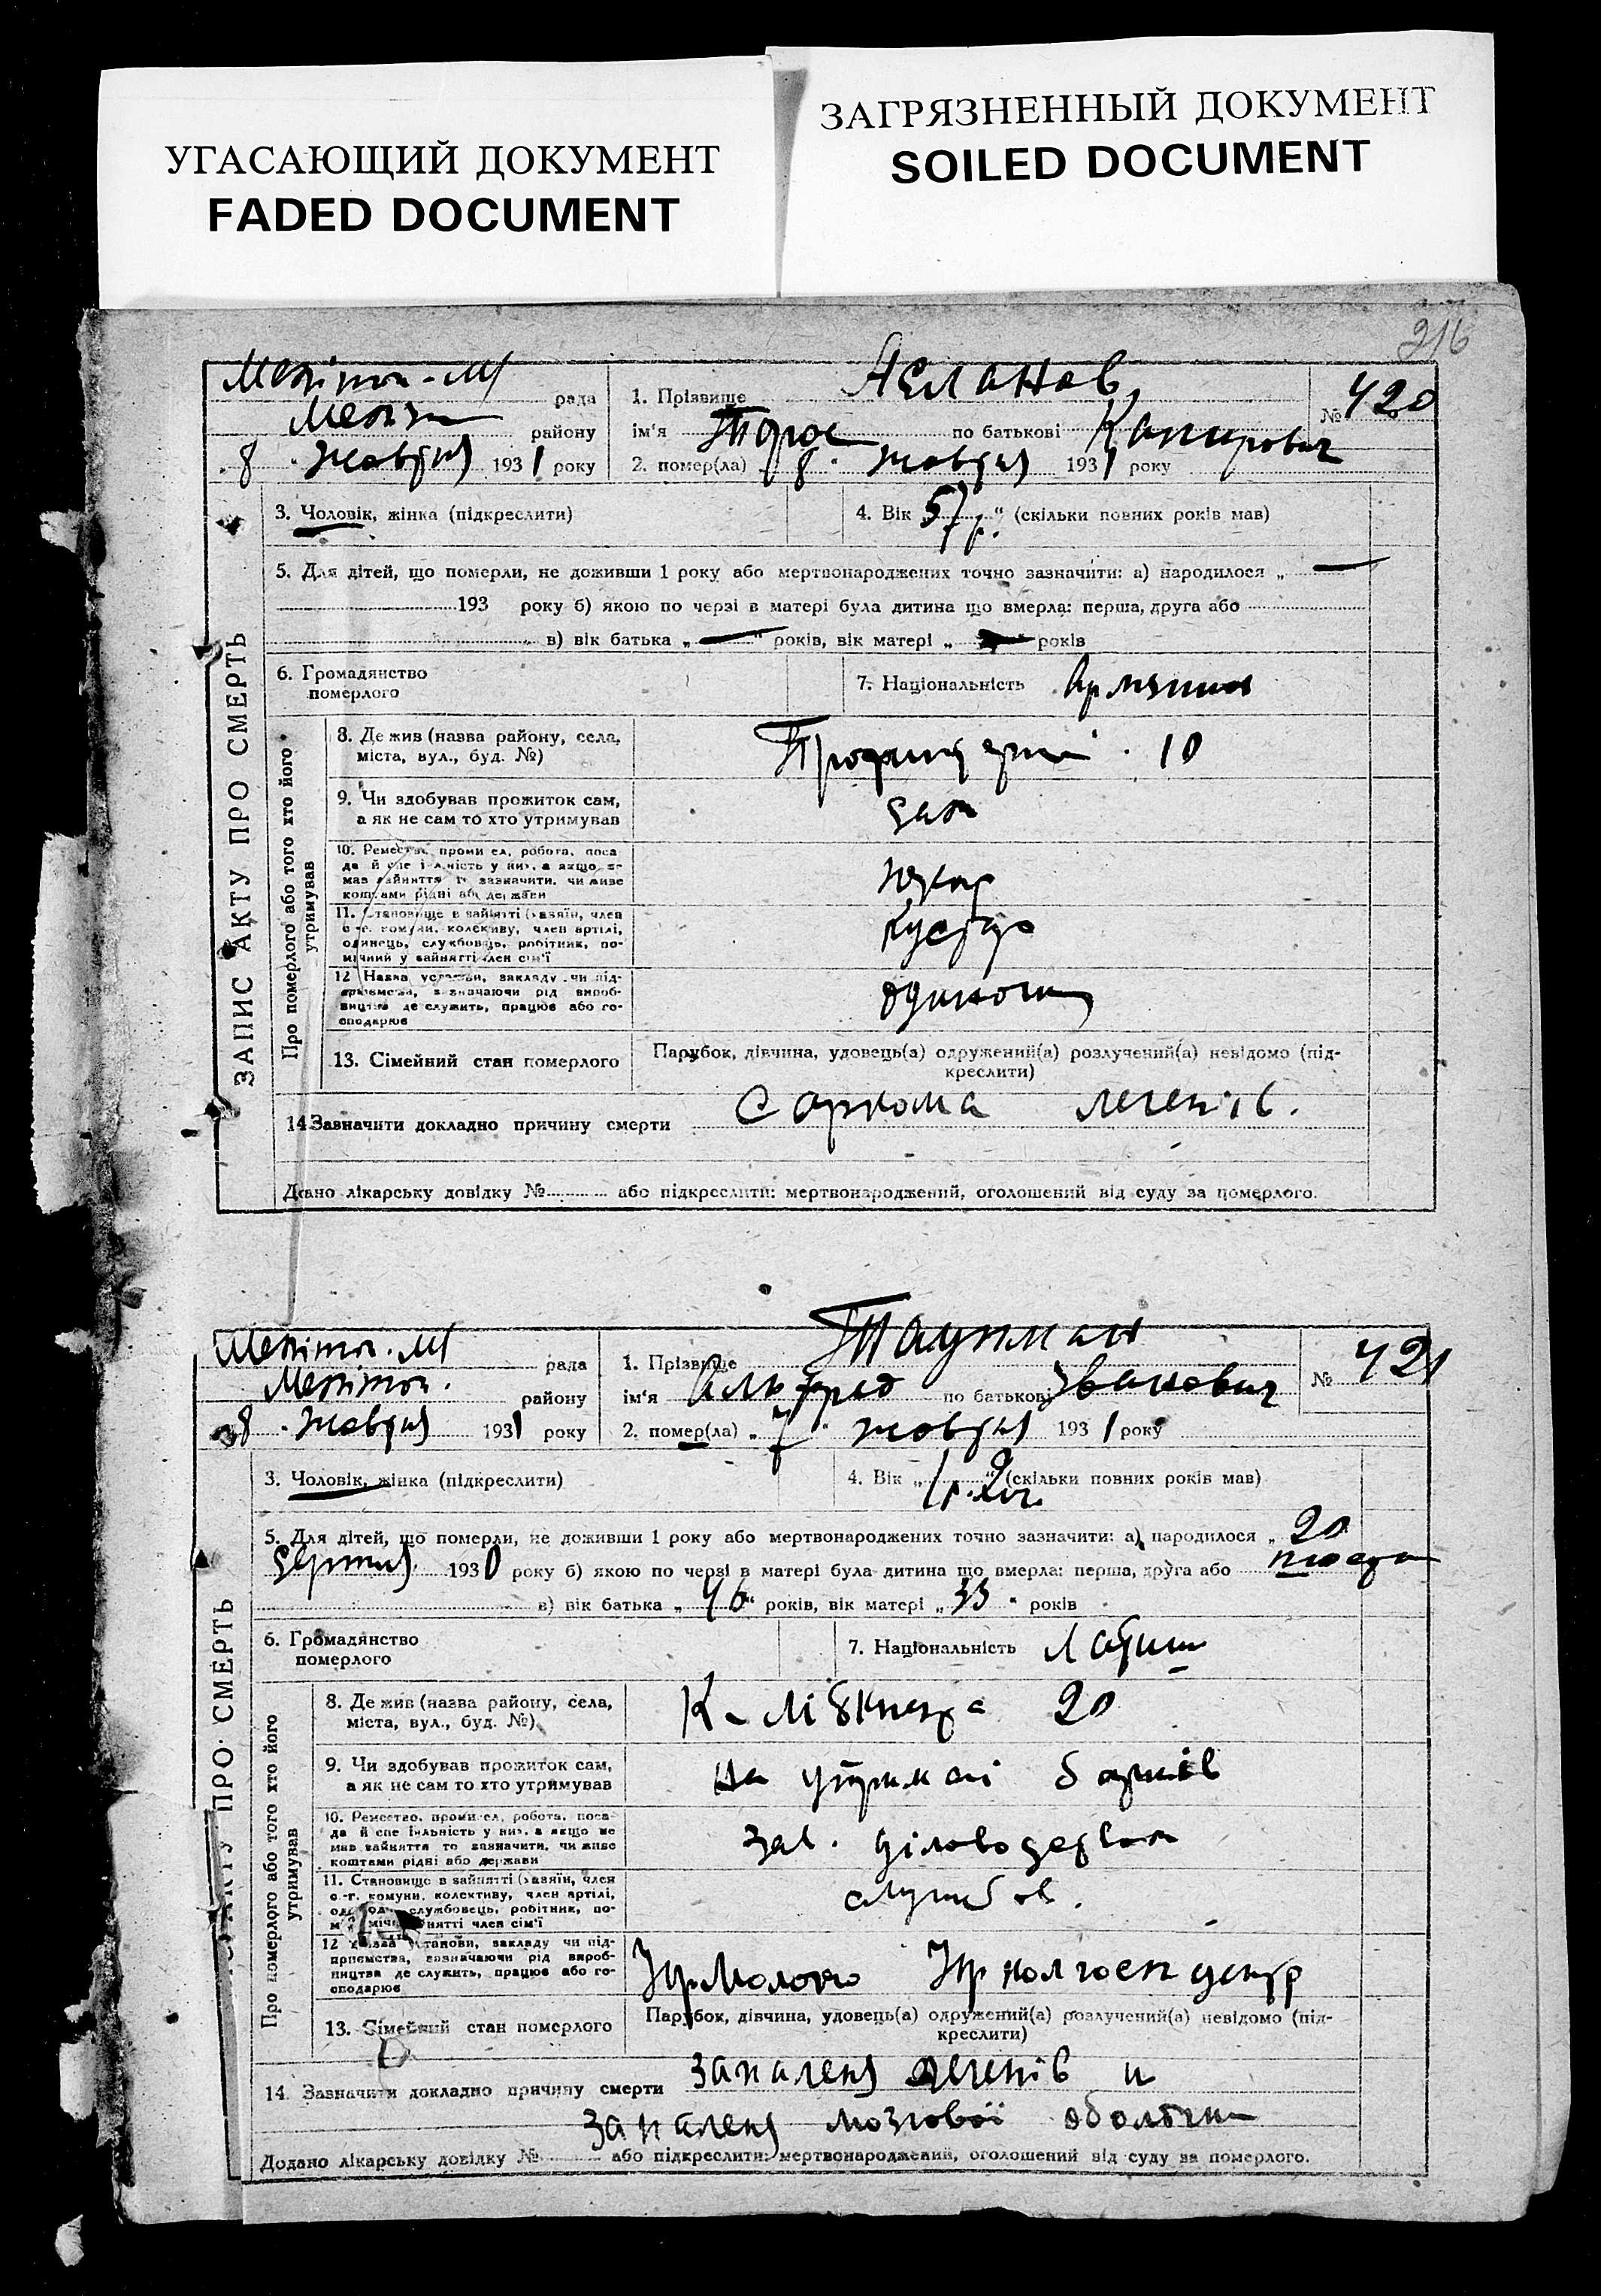 УГАСАЮЩИЙ ДОКУМЕНТ
FADED DOCUMENT
ЗАГРЯЗНЕННЫЙ ДОКУМЕНТ
SOILED DOCUMENT
316
ЗАПИС АКТУ ПРО СМЕРТЬ
рада
району
8 жовтня 1931 року
1. Прізвище Асланов
ім'я по батькові
2. помер(ла) „8" жовтня 1931 року
№ 420
3. Чоловік, жінка (підкреслити)
4. Вік „57 р." (скільки повних років мав)
5. Для дітей, що померли, не доживши 1 року або мертвонароджених точно зазначити: а) народилося „—
193 року б) якою по черзі в матері була дитина що вмерла: перша, друга або
в) вік батька „—" років, вік матері „—" років
6. Громадянство
померлого
7. Національність
Про померлого або того хто його
утримував
8. Де жив (назва району, села,
міста, вул., буд. №)
10
9. Чи здобував прожиток сам,
а як не сам то хто утримував
сам
10. Ремество, промисел, робота, поса
да й спеціяльність у них, а якщо не
мав зайняття то зазначити, чи живе
коштами рідні або держави
11. Становище в зайнятті (хазяїн, член
с.-г. комуни, колективу, член артілі,
одинець, службовець, робітник, по-
мічний у зайнятті член сім'ї
12 Назва установи, закладу чи під-
приємства, зазначаючи рід вироб-
ництва де служить, працює або го-
сподарює
13. Сімейний стан померлого
Парубок, дівчина, удовець(а) одружений(а) розлучений(а) невідомо (під-
креслити)
14 Зазначити докладно причину смерти Саркома легенів.
Додано лікарську довідку № або підкреслити: мертвонароджений, оголошений від суду за померлого.
АКТУ ПРО СМЕРТЬ
рада
району
8 жовтня 1931 року
1. Прізвище Таупман
ім'я Альфред по батькові Іванович
2. помер(ла) „7" жовтня 1931 року
№ 421
3. Чоловік, жінка (підкреслити)
4. Вік „ " (скільки повних років мав)
5. Для дітей, що померли, не доживши 1 року або мертвонароджених точно зазначити: а) народилося „20
серпня 1930 року б) якою по черзі в матері була дитина що вмерла: перша, друга або
в) вік батька „46" років, вік матері „33" років
6. Громадянство
померлого
7. Національність Латиш
Про померлого або того хто його
утримував
8. Де жив (назва району, села,
міста, вул., буд. №)
К. Лібкнехта 20
9. Чи здобував прожиток сам,
а як не сам то хто утримував
на утриман батьків
10. Ремество, промисел, робота, поса-
да й спеціяльність у них, а якщо не
мав зайняття то зазначити, чи живе
коштами рідні або держави
Зав. діловодством
11. Становище в зайнятті (хазяїн, член
с.-г. комуни, колективу, член артілі,
одинець, службовець, робітник, по-
мічний у зайнятті член сім'ї
службов.
12 Назва установи, закладу чи під-
приємства, зазначаючи рід вироб-
ництва де служить, працює або го-
сподарює
Укрмолоко Укрколгоспцентр
13. Сімейний стан померлого
Парубок, дівчина, удовець(а) одружений(а) розлучений(а) невідомо (під-
креслити)
14. Зазначити докладно причину смерти запаленя легенів и
запаленя мозгової оболочки
Додано лікарську довідку № або підкреслити: мертвонароджений, оголошений від суду за померлого.